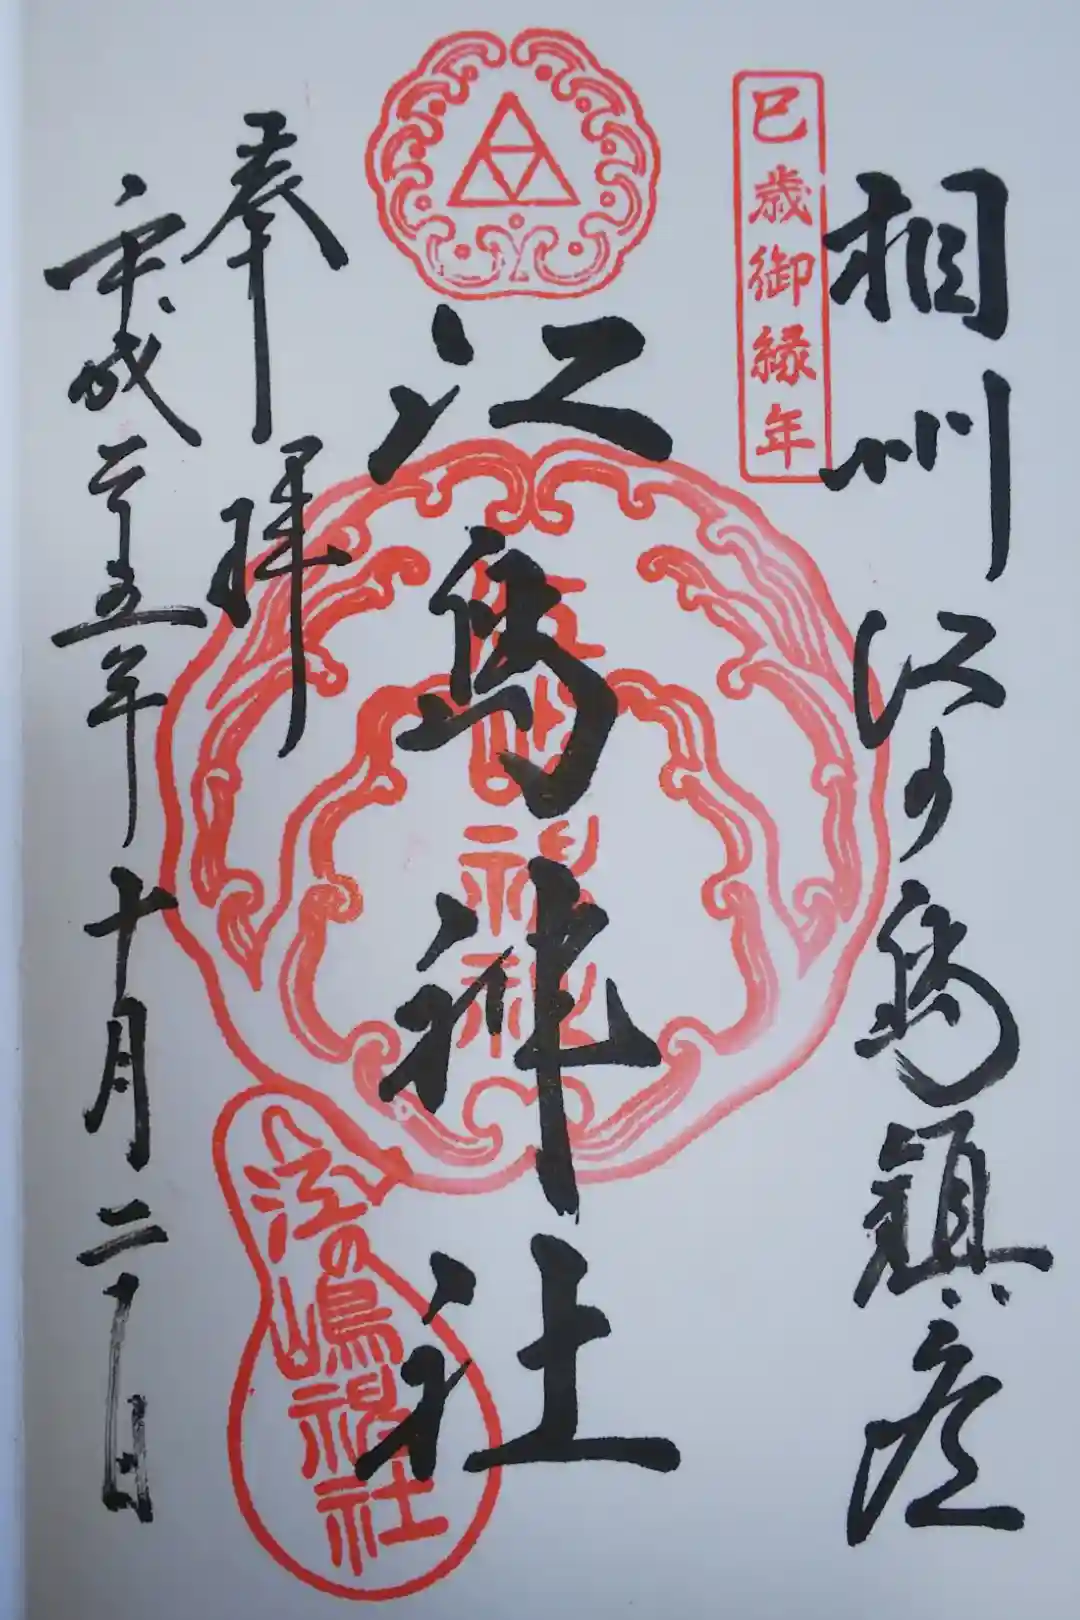 相州江の島鎮座
巳歳御縁年
江島神社
奉拝
平成二十五年十月二十一日
江の嶋神社